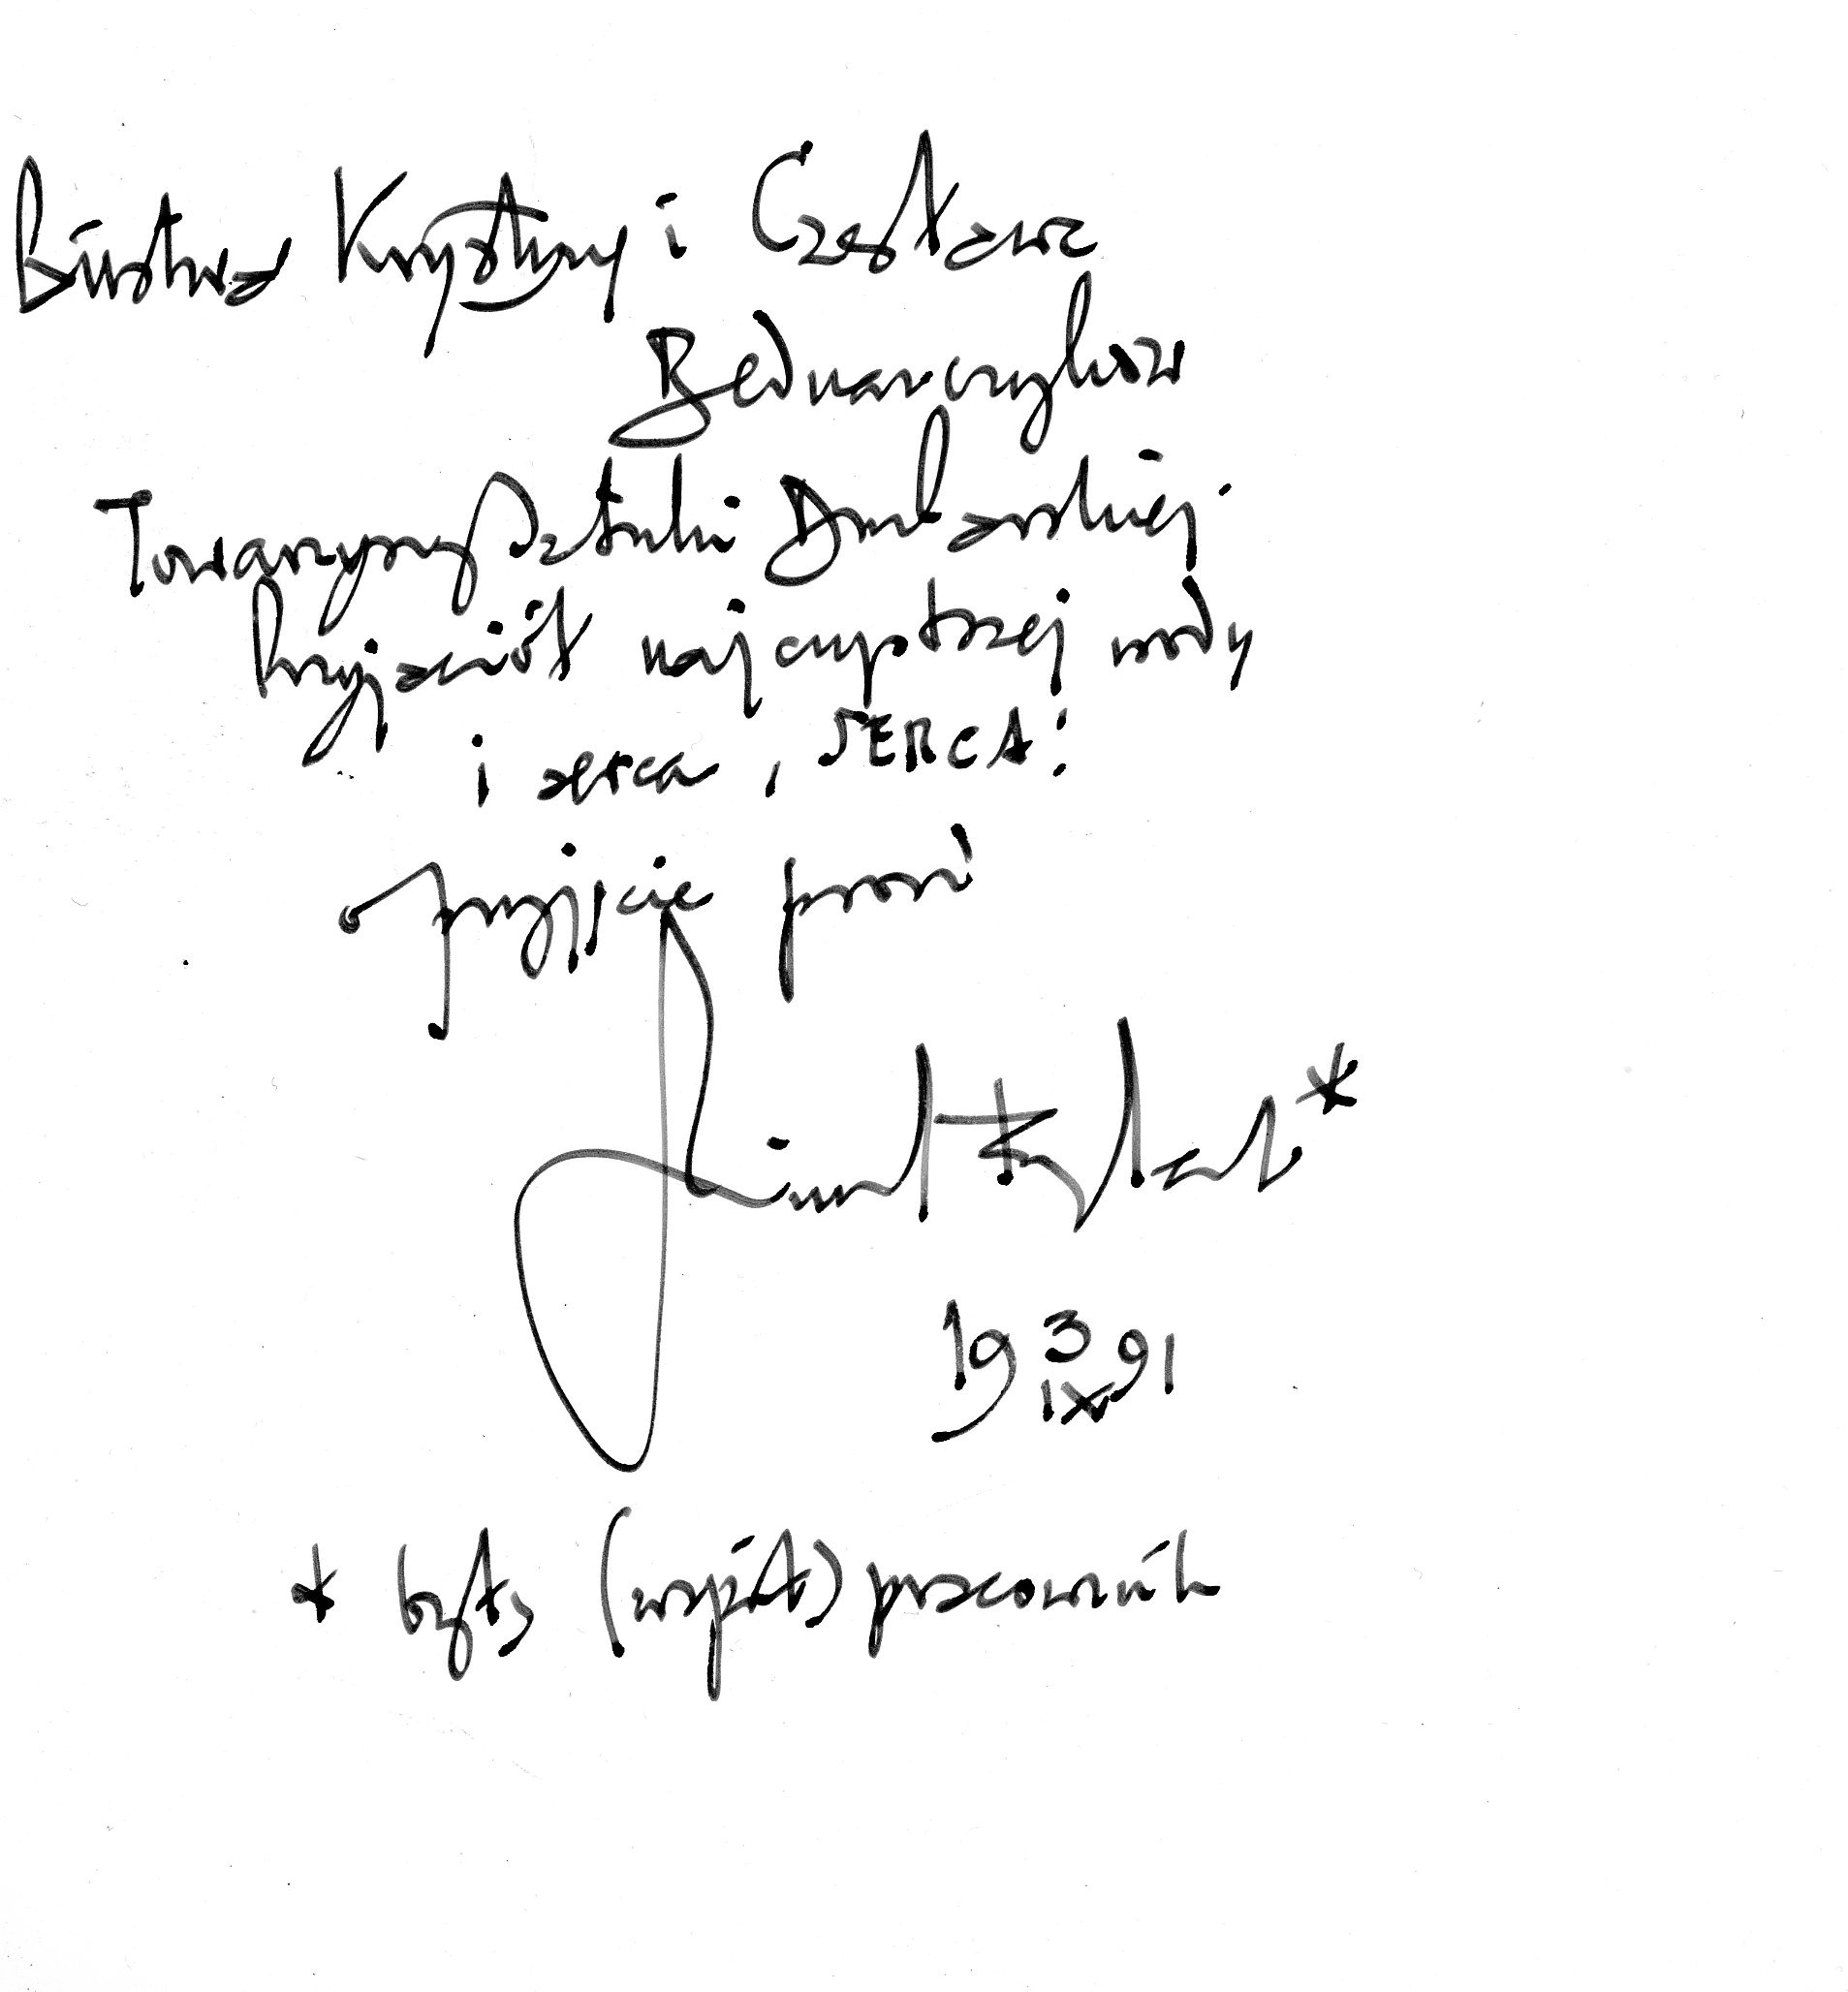 Bóstwa Krystyny i Czesława
Bednarczyków
Towarzyszy Sztuki Drukarskiej
Przyjaciół najczystszej wody
i serca, SERCA!
przyjąć prosi
19 3 IX 91
* były (współ) pracownik